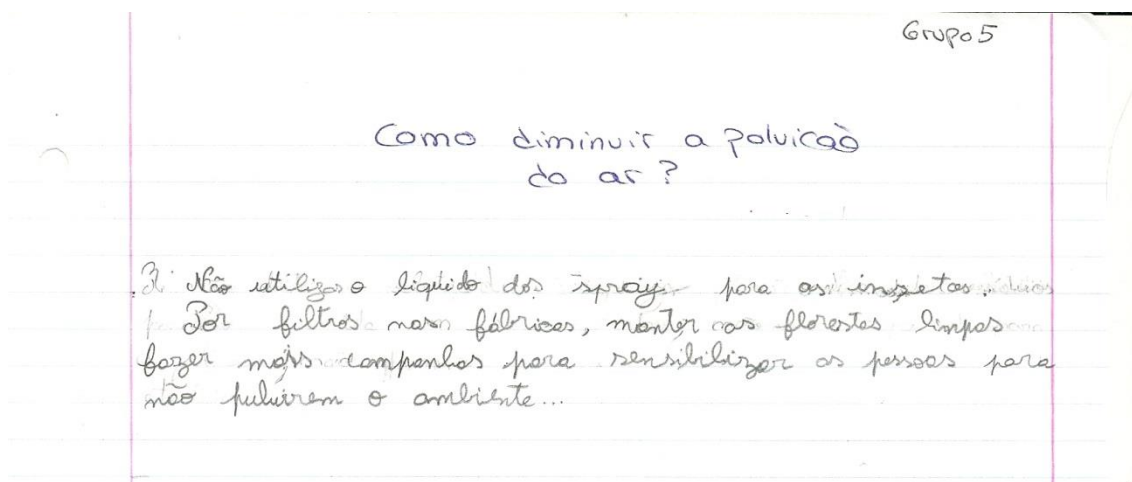 Grupo 5
Como diminuir a poluicaò
do ar?
R: Não utilizar o liquido dos sprays para os insetos.
Por filtros nas fábricas, manter as florestas limpas
fazer mais campanhas para sensibilizar as pessoas para
não puluirem o ambiente...